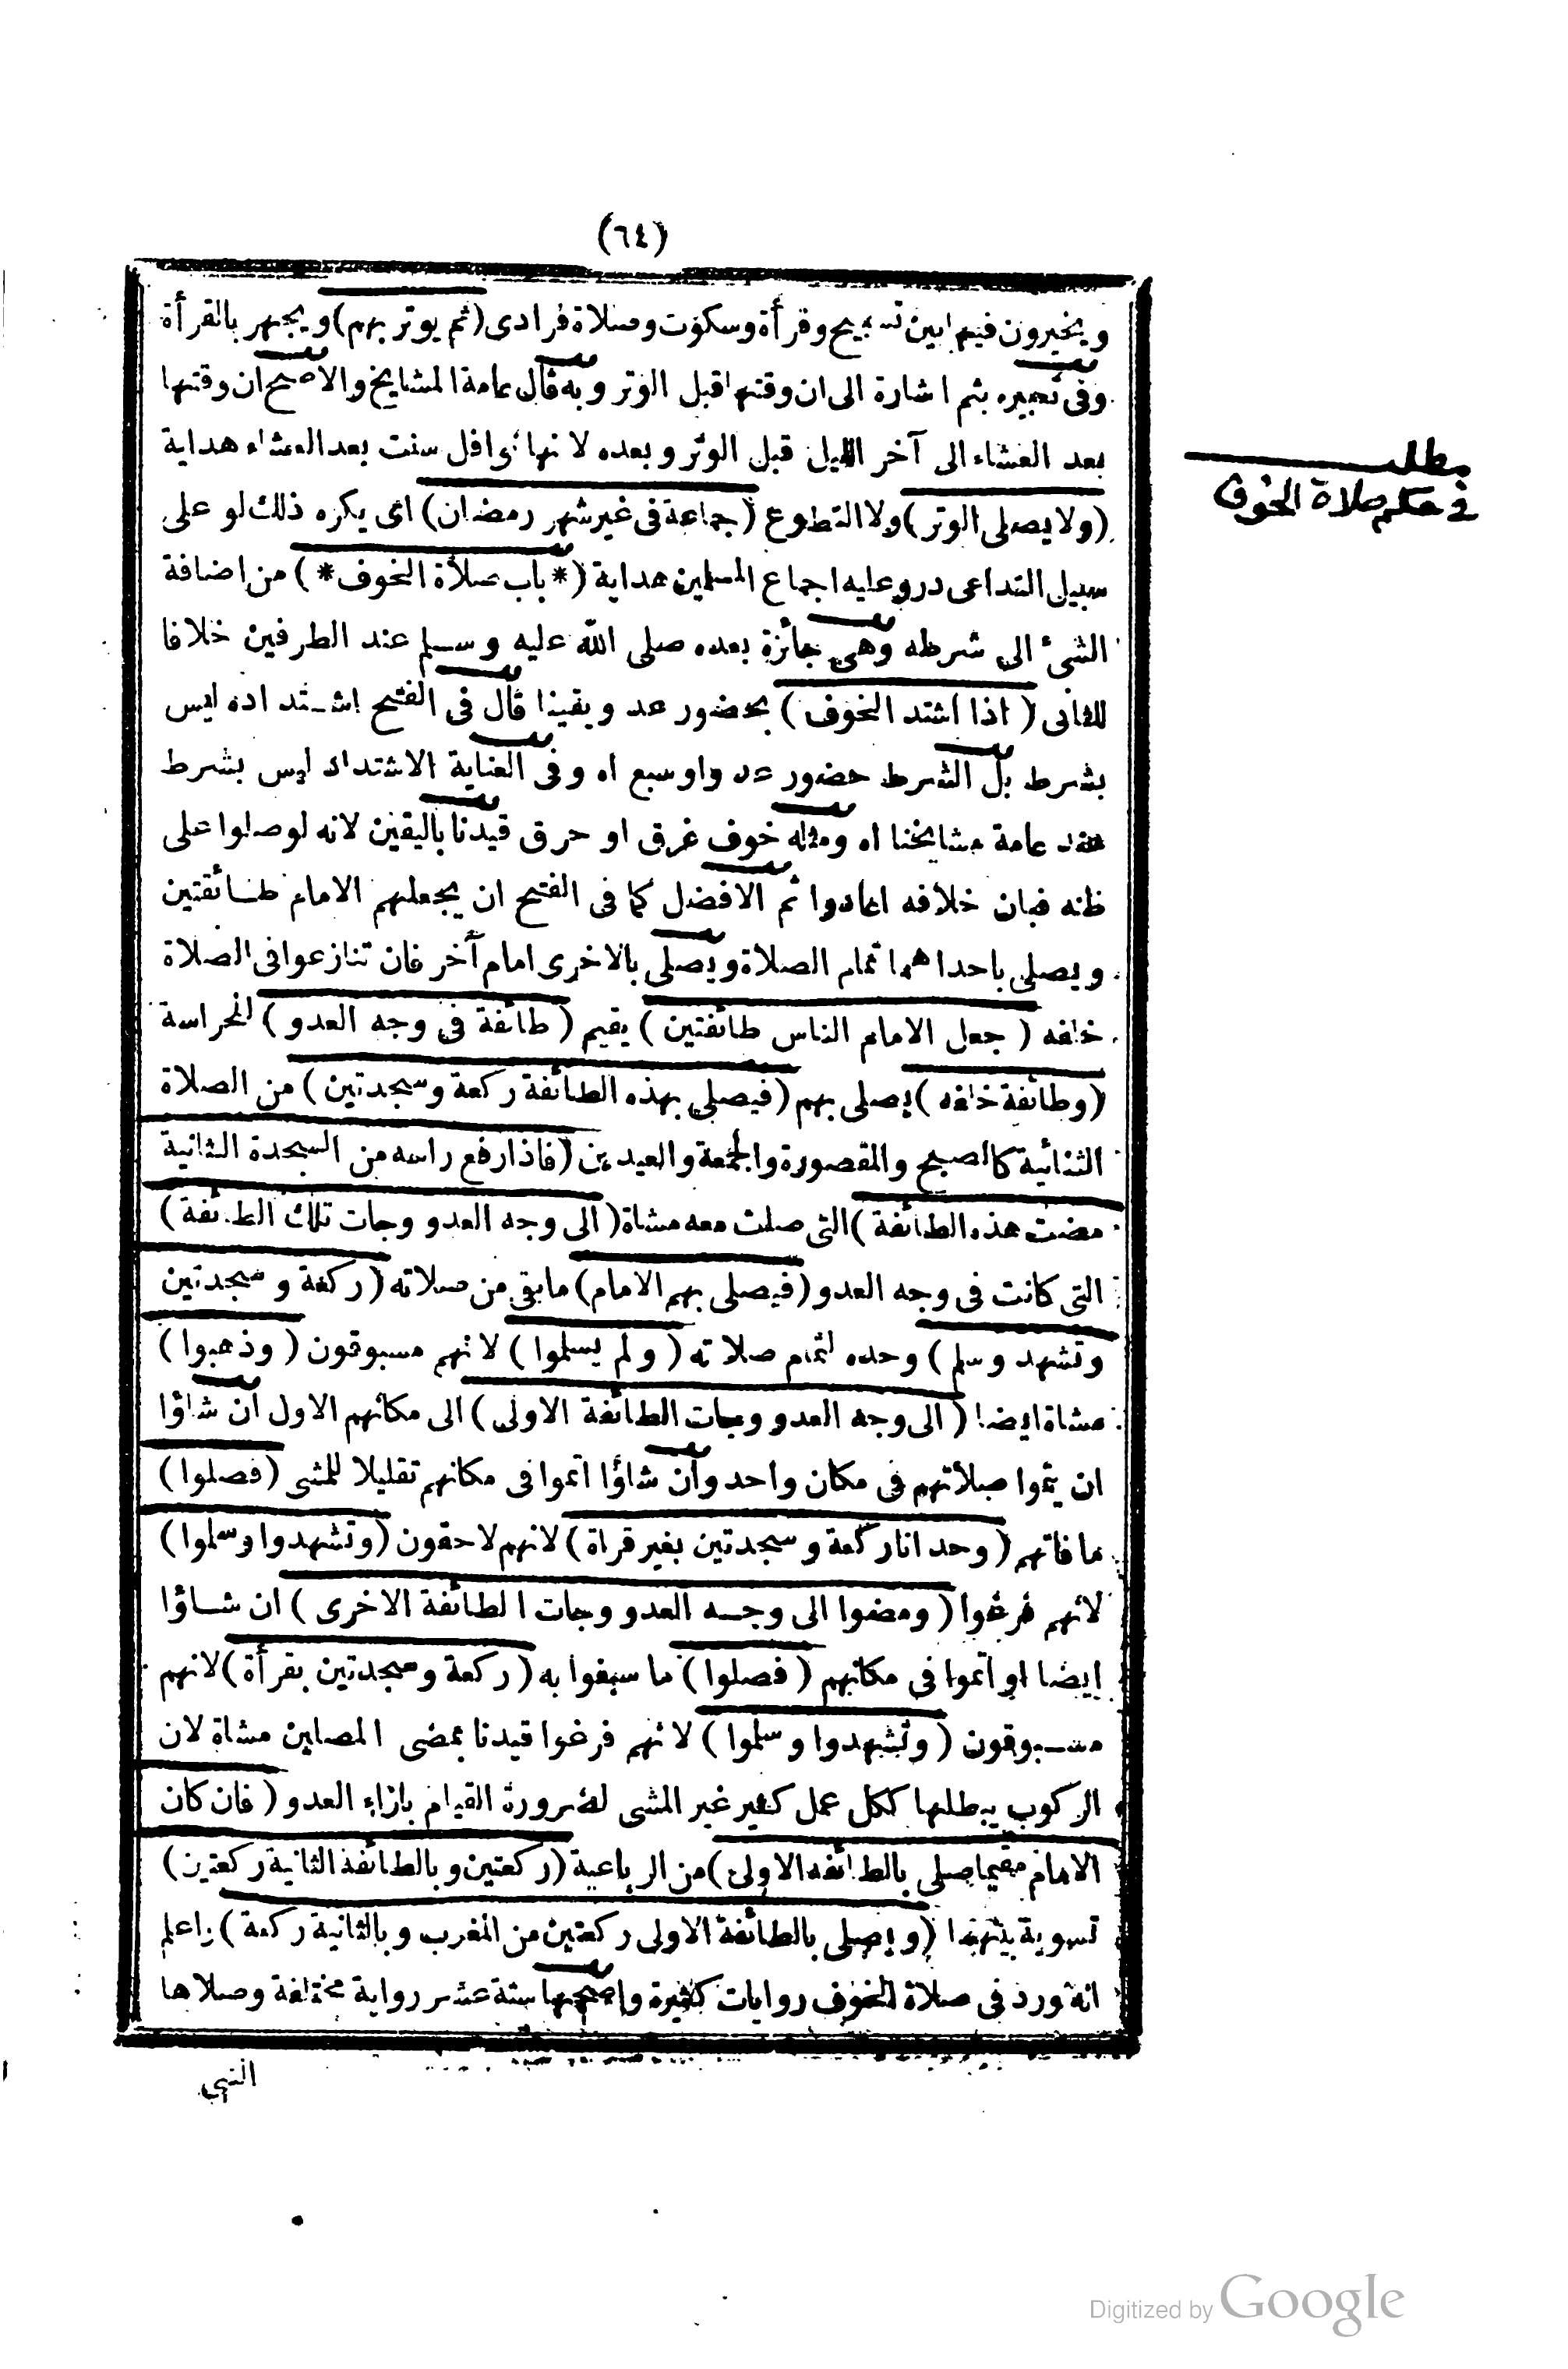 (٦٤)
ويخيرون فيها بين تسبيح وقرأة وسكوت وصلاة فرادى (ثم يوتر بهم) ويجهر بالقرأة
وفى تعبيره بثم اشارة الى ان وقتها قبل الوتر وبه قال عامة المشايخ والاصح ان وقتها
بعد العشاء الى آخر الليل قبل الوتر وبعده لانها نوافل سنت بعد العشاء هداية
(ولا يصلى الوتر) ولا التطوع (جماعة فى غير شهر رمضان) اى يكره ذلك لو على
سبيل التداعى درر وعليه اجماع المسلمين هداية (* باب صلاة الخوف *) من اضافة
الشئ الى شرطه وهى جائزة بعده صلى الله عليه وسلم عند الطرفين خلافا
للثانى (اذا اشتد الخوف) بحضور عدو يقينا قال فى الفتح اشتداده ليس
بشرط بل الشرط حضور عدو او سبع اه وفى العناية الاشتداد ليس بشرط
عند عامة مشايخنا اه ومثله خوف غرق او حرق قيدنا باليقين لانه لو صلوا على
ظنه فبان خلافه اعادوا ثم الافضل كما فى الفتح ان يجعلهم الامام طائفتين
ويصلى باحداهما تمام الصلاة ويصلى بالاخرى امام آخر فان تنازعوا فى الصلاة
خلفه (جعل الامام الناس طائفتين) يقيم (طائفة فى وجه العدو) للحراسة
(وطائفة خلفه) يصلى بهم (فيصلى بهذه الطائفة ركعة وسجدتين) من الصلاة
الثنائية كالصبح والمقصورة والجمعة والعيدين (فاذا رفع راسه من السجدة الثانية
مضت هذه الطائفة) التى صلت معه مشاة (الى وجه العدو وجات تلك الطائفة)
التى كانت فى وجه العدو (فيصلى بهم الامام) ما بقى من صلاته (ركعة وسجدتين
وتشهد وسلم) وحده لتمام صلاته (ولم يسلموا) لانهم مسبوقون (وذهبوا)
مشاة ايضا (الى وجه العدو وجات الطائفة الاولى) الى مكانهم الاول ان شاؤا
ان يتموا صلاتهم فى مكان واحد وان شاؤا اتموا فى مكانهم تقليلا للمشى (فصلوا)
ما فاتهم (وحدانا ركعة وسجدتين بغير قراة) لانهم لاحقون (وتشهدوا وسلموا)
لانهم فرغوا (ومضوا الى وجه العدو وجات الطائفة الاخرى) ان شاؤا
ايضا او اتموا فى مكانهم (فصلوا) ما سبقوا به (ركعة وسجدتين بقرأة) لانهم
مسبوقون (وتشهدوا وسلموا) لانهم فرغوا قيدنا بمضى المصلين مشاة لان
الركوب يبطلها ككل عمل كثير غير المشى لضرورة القيام بازاء العدو (فان كان
الامام مقيما صلى بالطائفة الاولى) من الرباعية (ركعتين وبالطائفة الثانية ركعتين)
تسوية بينهما (ويصلى بالطائفة الاولى ركعتين من المغرب وبالثانية ركعة) واعلم
انه ورد فى صلاة الخوف روايات كثيرة واصحها ستة عشر رواية مختلفة وصلاها
النبى
مطلب
فى حكم صلاة الخوف
Digitized by Google